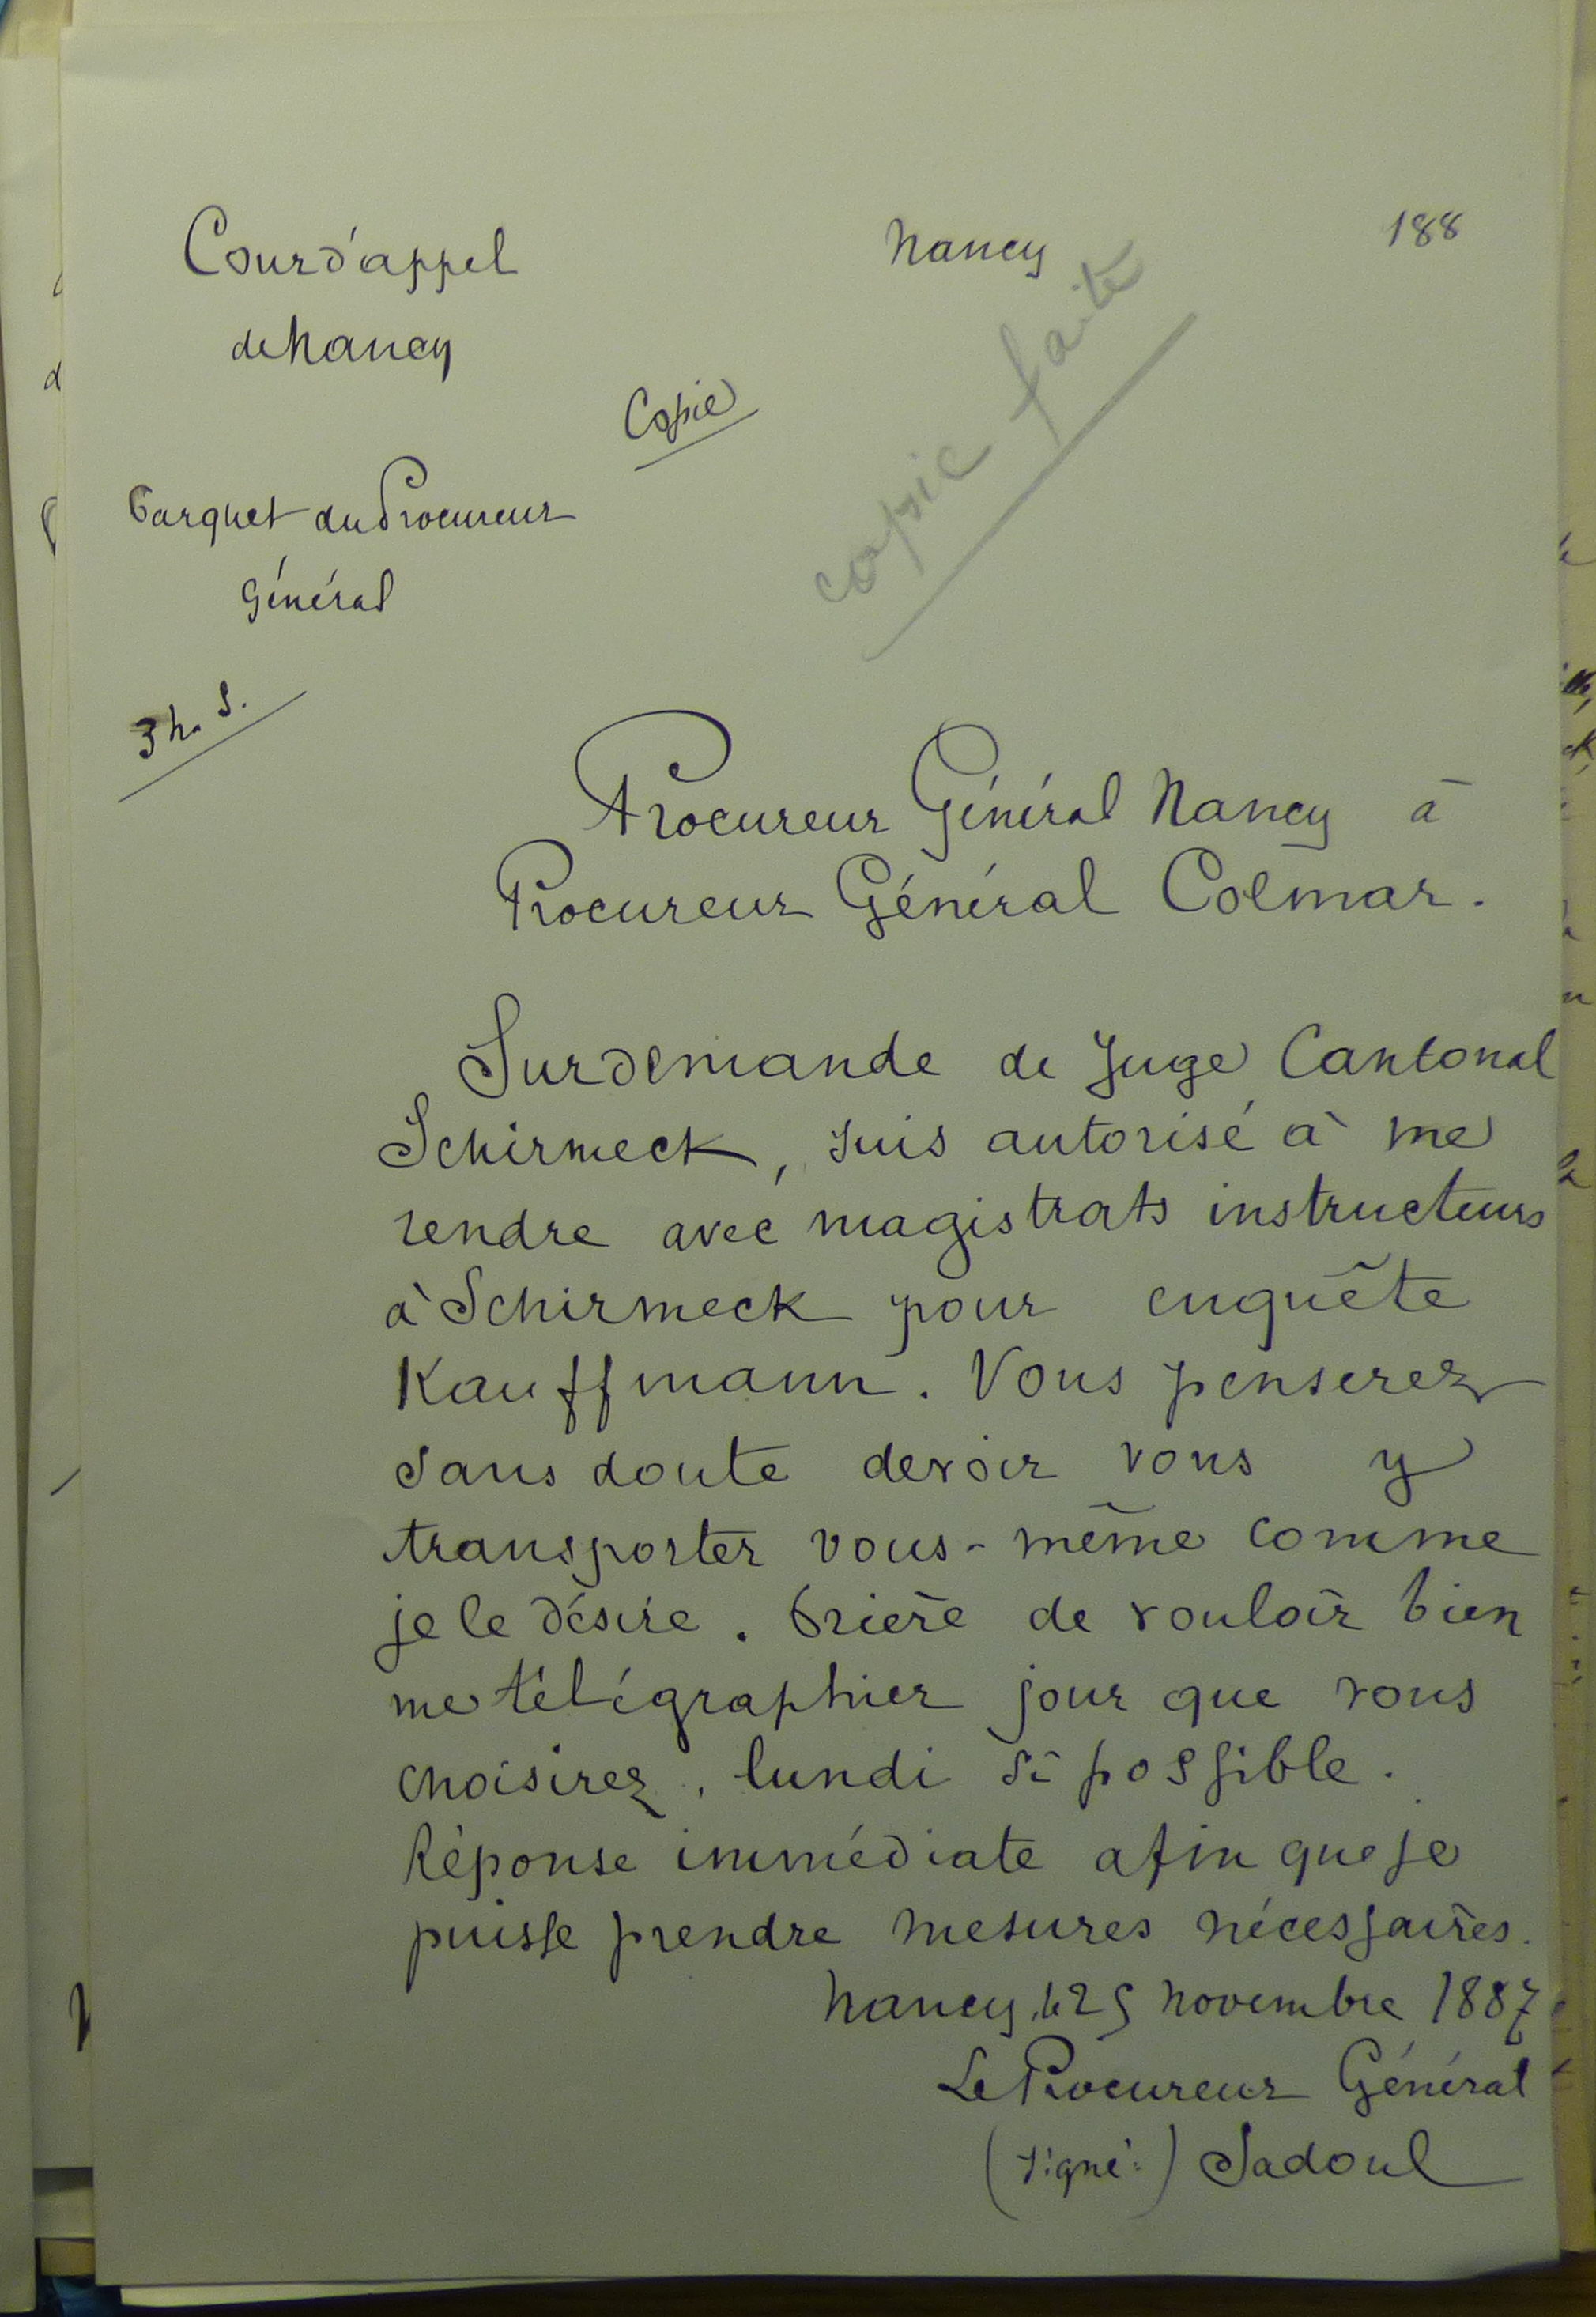 Cour d'appel
de Nancy
Nancy 188
Copie
copie faite
Parquet du Procureur
Général
3 h. S.
Procureur Général Nancy à
Procureur Général Colmar.
Sur demande de Juge Cantonal
Schirmeck, suis autorisé à me
rendre avec magistrats instructeurs
à Schirmeck pour enquête
Kauffmann. Vous penserez
sans doute devoir vous y
transporter vous-même comme
je le désire. Prière de vouloir bien
me télégraphier jour que vous
choisirez, lundi si possible.
Réponse immédiate afin que je
puisse prendre mesures nécessaires.
Nancy, le 25 novembre 1887
Le Procureur Général
(signé:) Sadoul